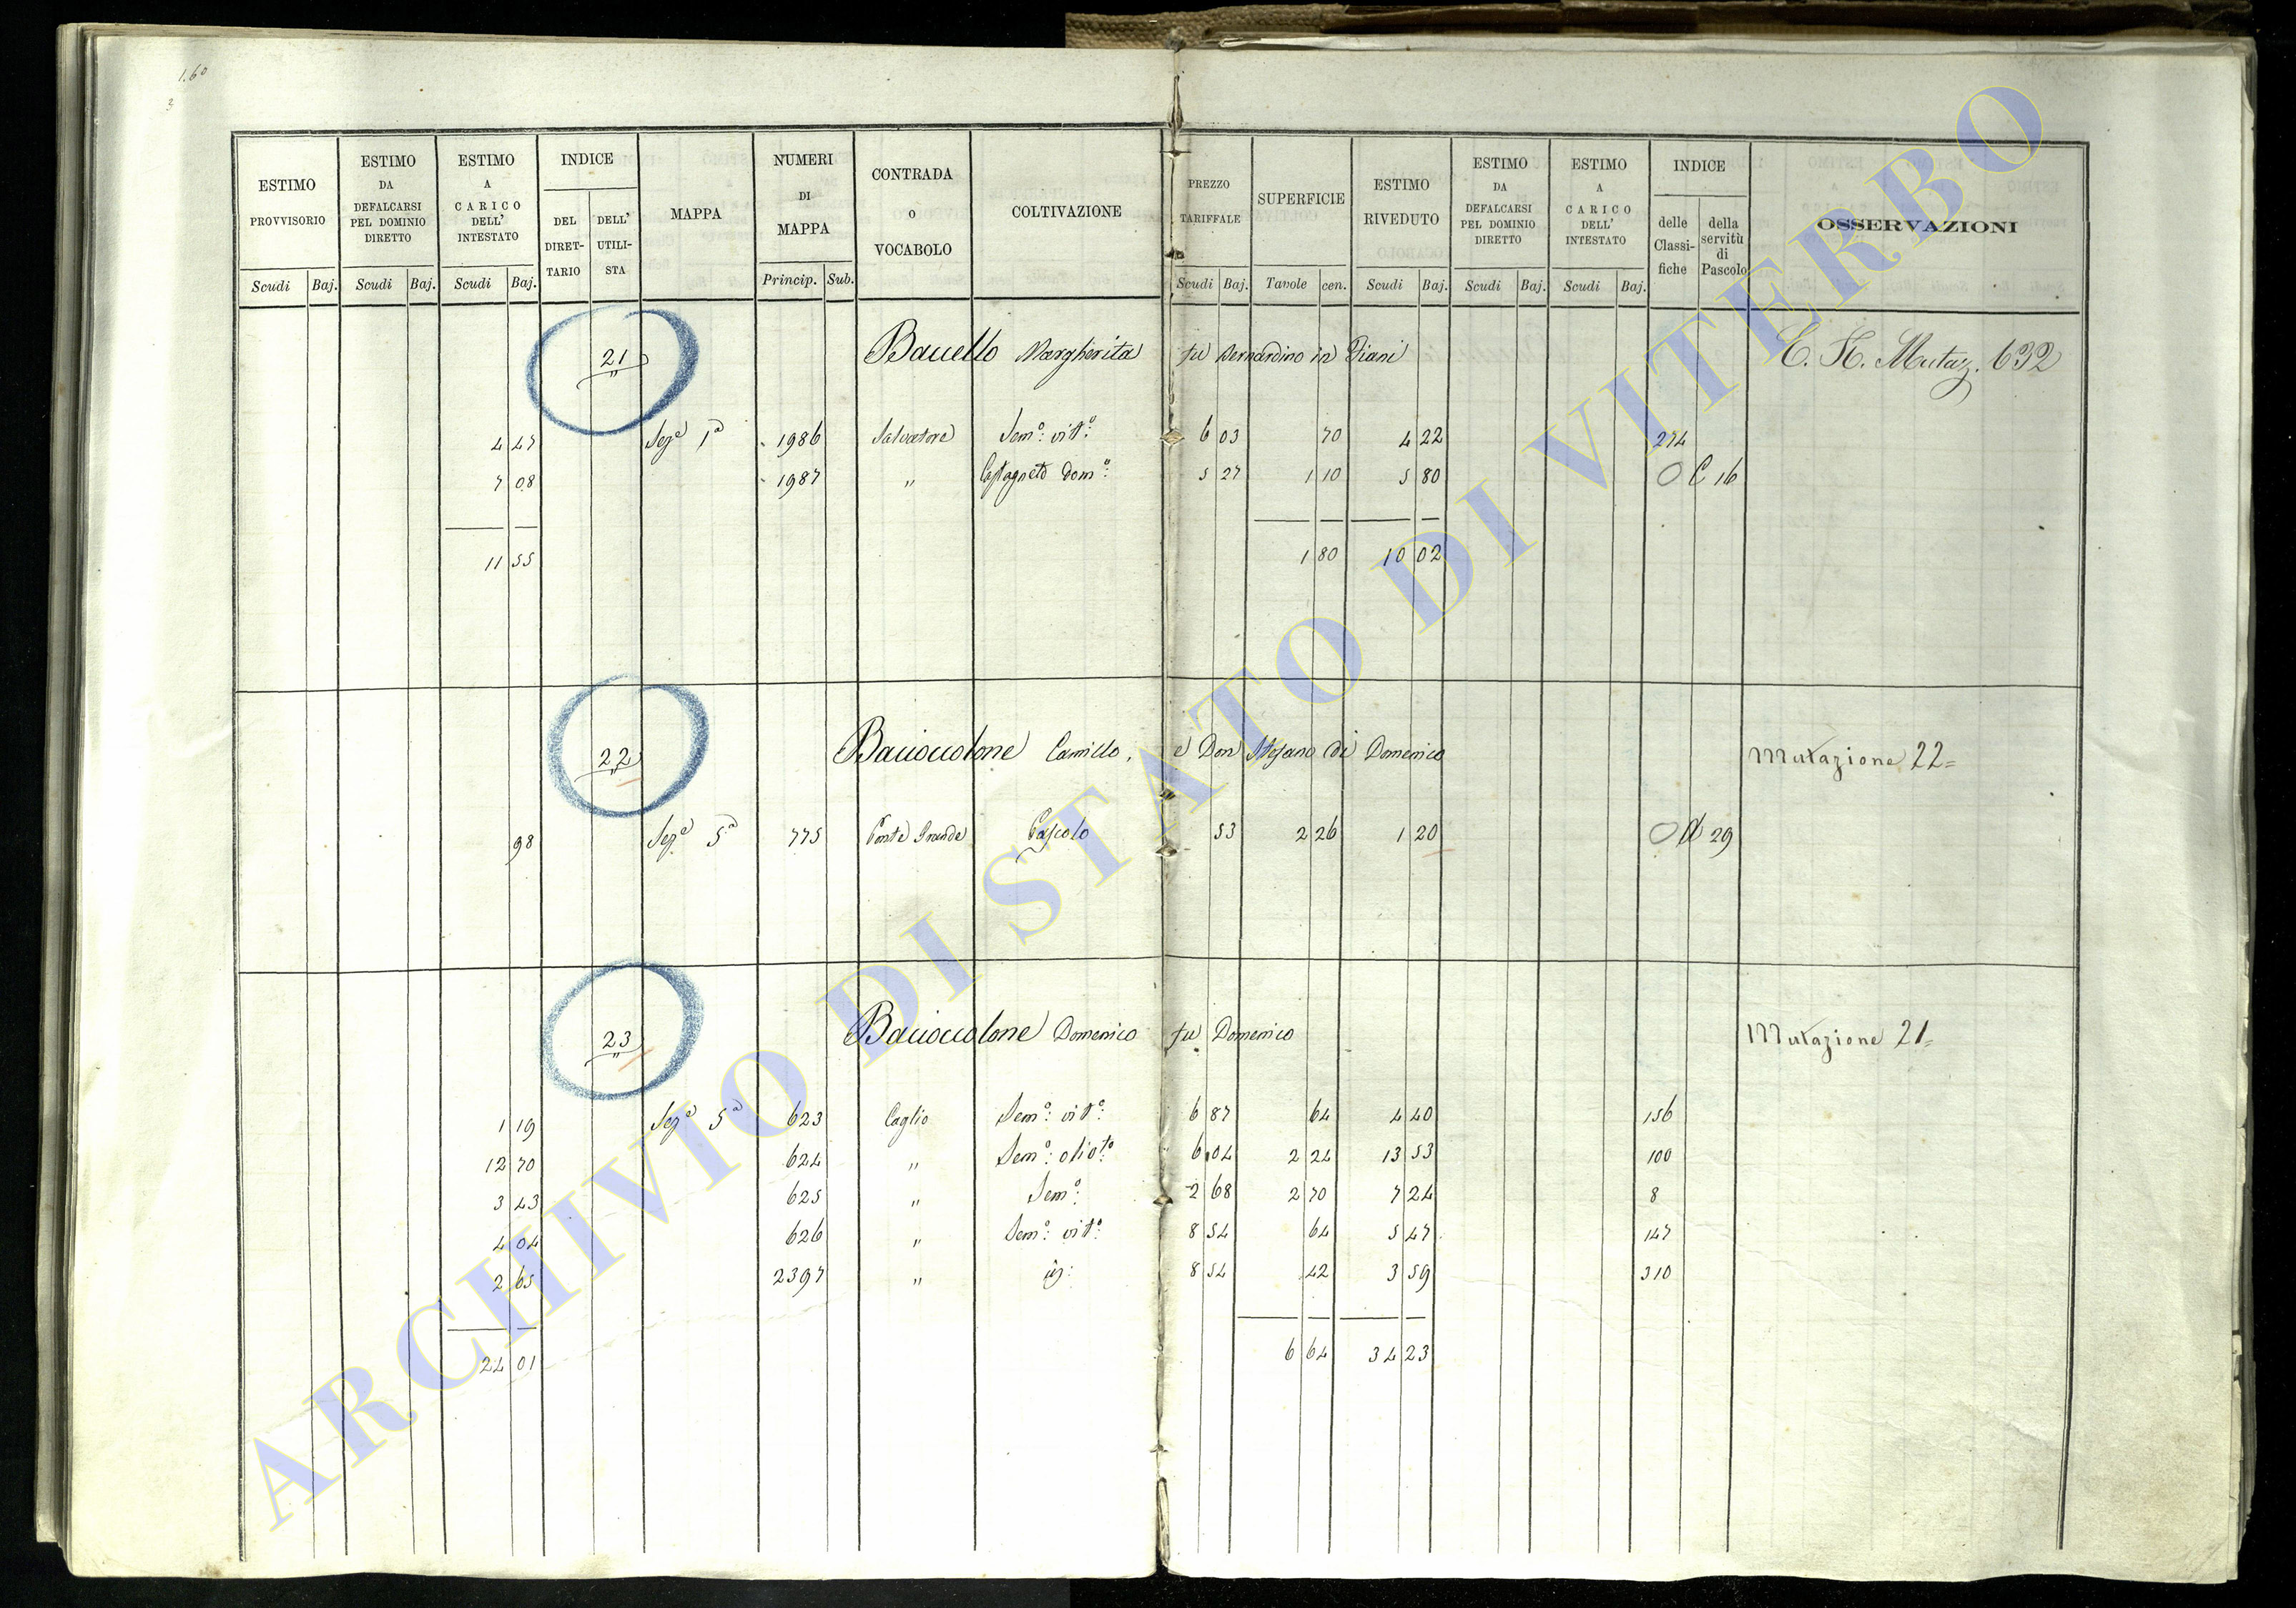 1.60
3
ESTIMO PROVVISORIO | ESTIMO DA DEFALCARSI PEL DOMINIO DIRETTO | ESTIMO A CARICO DELL' INTESTATO | INDICE DEL DIRETTARIO | DELL' UTILISTA | MAPPA | NUMERI DI MAPPA | CONTRADA O VOCABOLO | COLTIVAZIONE | PREZZO TARIFFALE | SUPERFICIE | ESTIMO RIVEDUTO | ESTIMO DA DEFALCARSI PEL DOMINIO DIRETTO | ESTIMO A CARICO DELL' INTESTATO | INDICE delle Classifiche | della servitù di Pascolo | OSSERVAZIONI
Scudi Baj. Scudi Baj. Scudi Baj. Princip. Sub. Scudi Baj. Tavole cen. Scudi Baj. Scudi Baj. Scudi Baj.
21 Bauello Margherita fu Bernardino in Diani C. H. Mutaz. 632
4 47 Sez.e 1a 1986 Salvatore Sem.o: vit.o: 6 03 70 4 22 274
7 08 1987 " Castagneto dom.o: 5 27 1 10 5 80 O C 16
11 55 1 80 10 02
22 Baiocolone Camillo, e Don Stefano di Domenico Mutazione 22=
98 Sez.e 5a 775 Ponte Grande Pascolo 53 2 26 1 20 O A 29
23 Baiocolone Domenico fu Domenico Mutazione 21=
1 19 Sez.e 5a 623 Caglio Sem.o: vit.o: 6 87 64 4 40 156
12 70 624 " Sem.o: oliot.o 6 04 2 24 13 53 100
3 43 625 " Sem.o: 2 68 2 70 7 24 8
4 04 626 " Sem.o: vit.o: 8 54 64 5 47 147
2 65 2397 " id: 8 54 42 3 59 310
24 01 6 64 34 23
ARCHIVIO DI STATO DI VITERBO